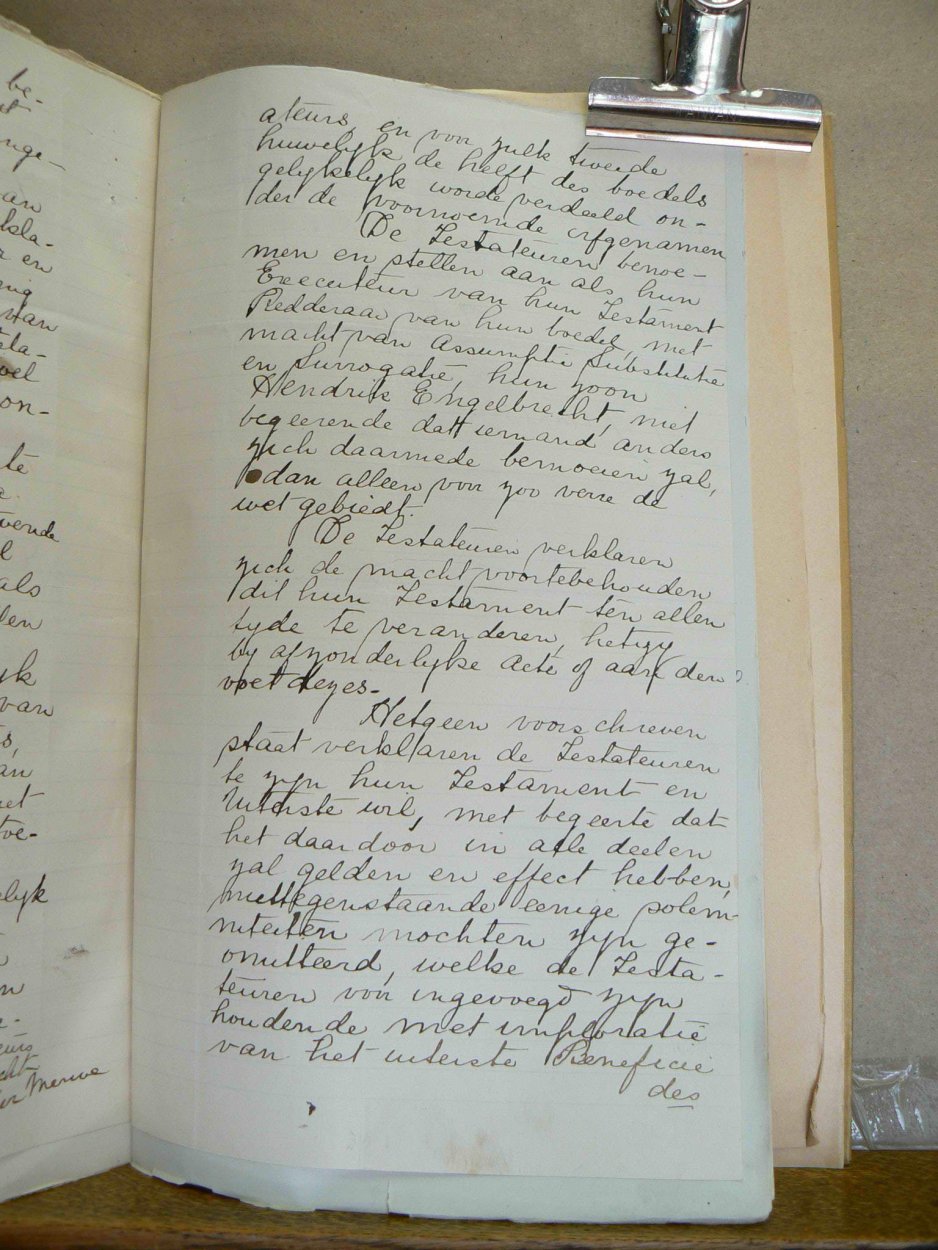 be-
nge-
van
kla-
r en
ning
van
sta-
wel
on-
te
vende
l
als
len
yk
van
s,
an
met
toe-
elyk
n
eurs
cht
Merwe
ateurs, en voor zulk tweede
huwelyk de helft des boedels
gelykelyk worde verdeeld on-
der de voornoemde erfgenamen
De Testateuren benoe-
men en stellen aan als hun
Executeur van hun Testament
Redderaar van hun boedel, met
macht van assumptie Substitutie
en Surrogatie, hun zoon
Hendrik Engelbrecht, niet
begeerende dat iemand anders
zich daarmede bemoeien zal,
dan alleen voor zoo verre de
wet gebiedt.
De Testateuren verklaren
zich de macht voortebehouden
dit hun Testament ten allen
tyde te veranderen, hetzy
by afzonderlyke acte of aan den
voet dezes.
Hetgeen voorschreven
staat verklaren de Testateuren
te zyn hun Testament en
Uiterste wil, met begeerte dat
het daardoor in alle deelen
zal gelden en effect hebben,
niettegenstaande eenige solem-
niteiten mochten zyn ge-
omitteerd, welke de Testa-
teuren voor ingevoegd zyn
houdende met imploratie
van het uiterste Beneficie
des
TAIWAN